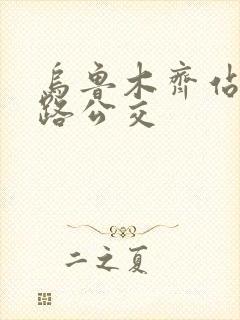 烏魯木齊佔
路公交
二之夏